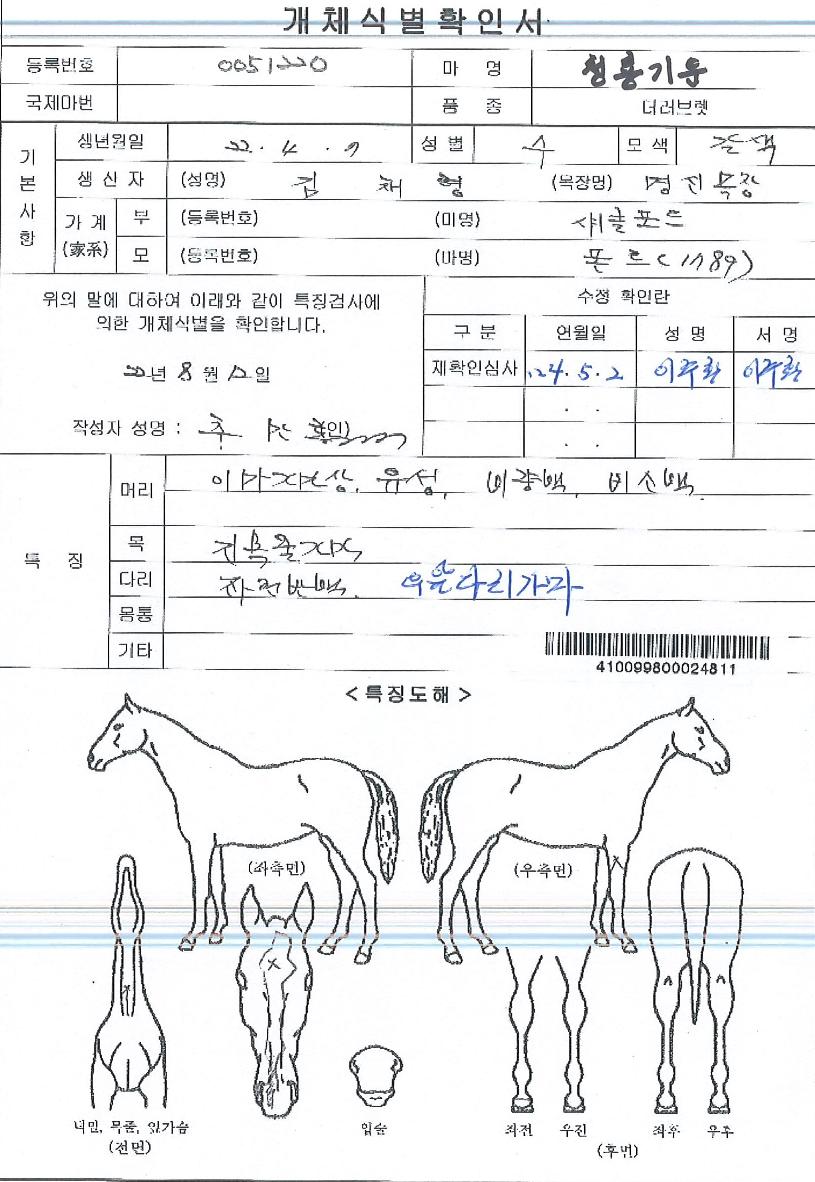 개체식별확인서
등록번호 0051220 마 명 청룡기운
국제마번 품 종 더러브렛
기본사항
생년월일 22. 4. 9 성별 수 모색 갈색
생산자 (성명) 김 채 형 (목장명) 명진목장
가계 (家系) 부 (등록번호) (마명) 섀클포드
모 (등록번호) (마명)
위의 말에 대하여 아래와 같이 특징검사에
의한 개체식별을 확인합니다.
22년 8월 12일
작성자 성명 : (인)
수정 확인란
구 분 연월일 성 명 서 명
재확인심사 24. 5. 2 이주환 이주환
. .
. .
특 징
머리 이마자상, 유성, 비량백, 비소백.
목
다리
몸통
기타
410099800024811
<특징도해>
(좌측면) (우측면)
좌전 우전 좌후 우후
입술
(전면) (후면)